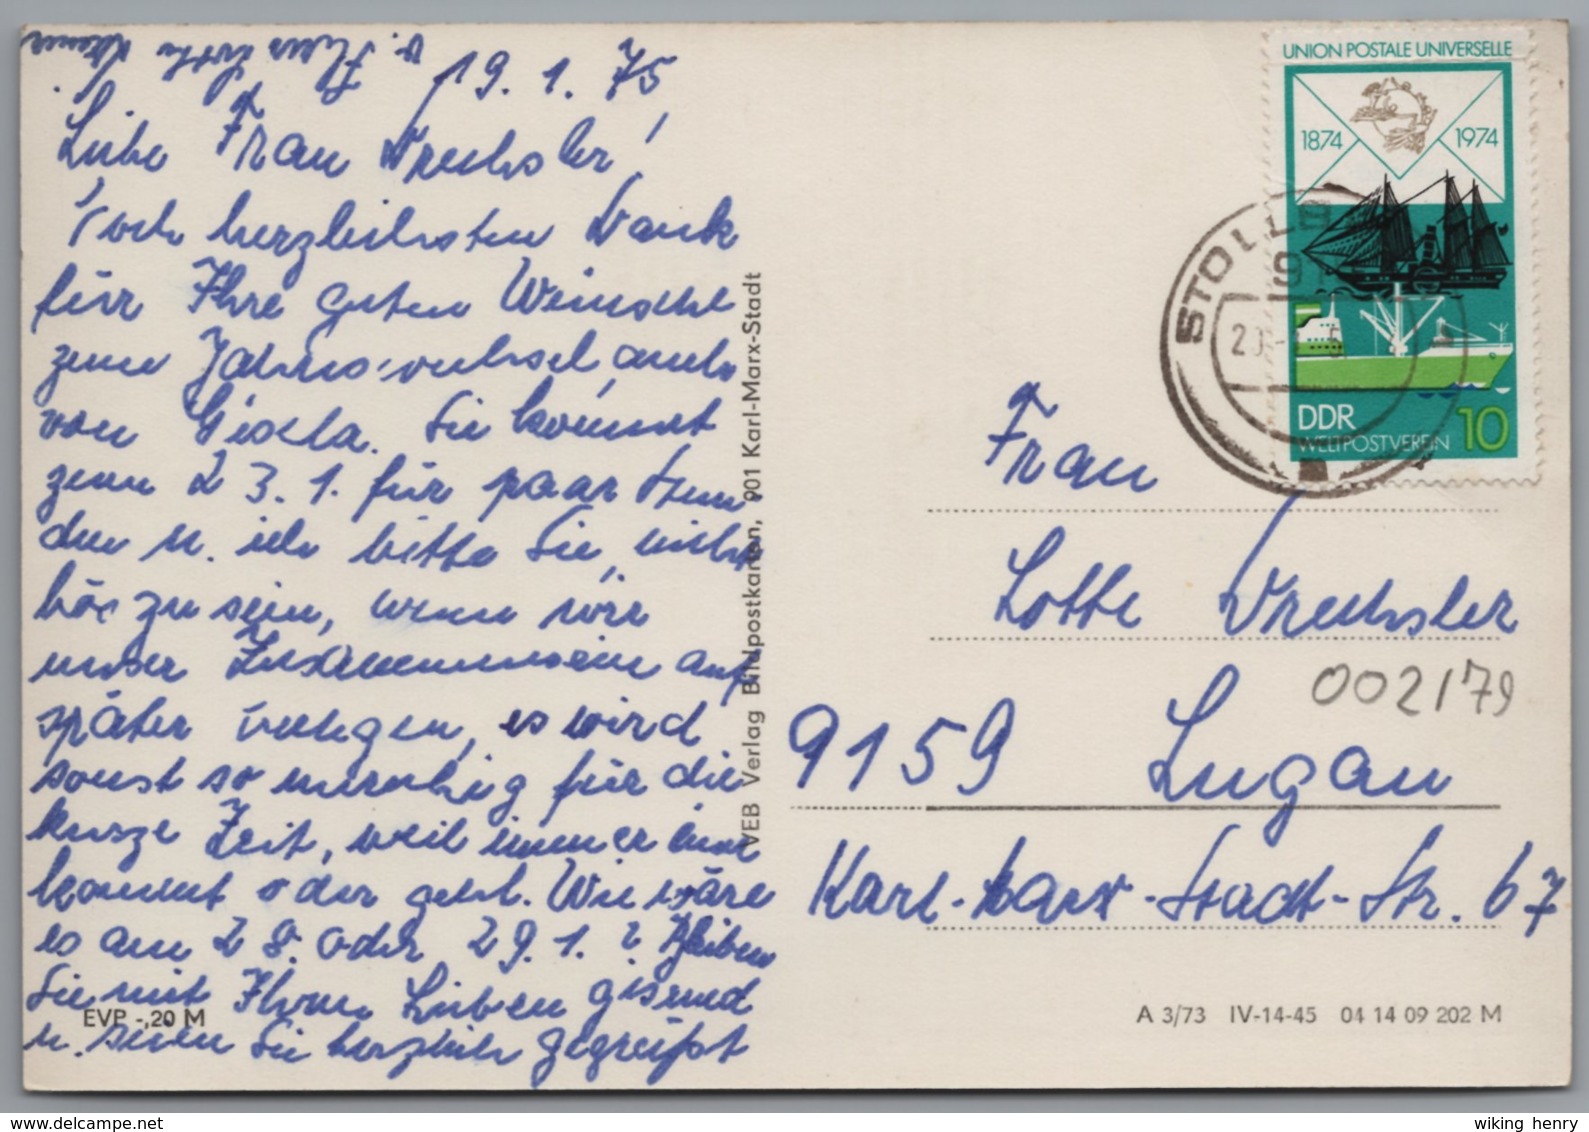 19. 1. 75
Liebe Frau Drechsler!
Noch herzlichsten Dank
für Ihre guten Wünsche
zum Jahreswechsel, auch
von Gisela. Sie kommt
zum 23.1. für paar Stun
den u. ich bitte Sie, nicht
bös zu sein, wenn wir
unser Zusammensein auf
später verlegen, es wird
sonst so unruhig für die
kurze Zeit, weil immer eins
kommt oder geht. Wie wäre
es am 28. oder 29. 1.? Bleiben
Sie mit Ihren Lieben gesund
u. seien Sie herzlich gegrüßt
v. Ihrer Lotte
EVP -,20 M
VEB Verlag Bildpostkarten, 901 Karl-Marx-Stadt
UNION POSTALE UNIVERSELLE
1874 1974
DDR
WELTPOSTVEREIN 10
STOLLB
Frau
Lotte Drechsler
002179
9159 Lugau
Karl-Marx-Stadt-Str. 67
A 3/73 IV-14-45 04 14 09 202 M
wiking henry